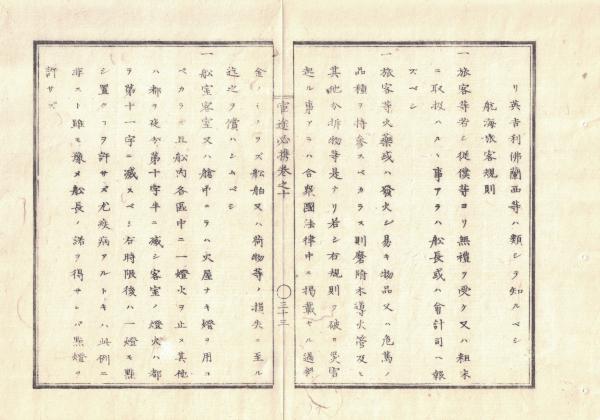 リ英吉利佛蘭西等ハ類シテ知スベシ
航海旅客規則
一旅客等若シ從僕等ヨリ無禮ヲ受ケ又ハ粗末
ニ取扱ハルヽ事アラハ舩長或ハ會計司ヘ報
ズベシ
一旅客等火藥或ハ發火シ易キ物品又ハ危篤ノ
品種ヲ持參スベカラス則磨附木導火管及ヒ
其他分拆物等是ナリ若シ右規則ヲ破リ災害
起ル事アラハ合衆國法律中ニ掲載セル過料
官途必携巻之十
三十三
金ノミナラズ舩舶又ハ荷物等ノ損失ニ至ル
迄之ヲ償ハシムベシ
一舩室客室又ハ艙中ニラハ火屋ナキ燈ヲ用ユ
ベカラズ且舩内各區中ニ一燈火ヲ止メ其他
ハ都テ夜第十字半ニ滅シ客室ノ燈火ハ都
テ第十一字ニ滅スベシ右時限後ハ一燈モ點
シ置クヿヲ許サズ尤疾病アルトキハ此例ニ
非スト雖モ豫メ舩長ノ諾ヲ得サレハ點燈ヲ
許サズ